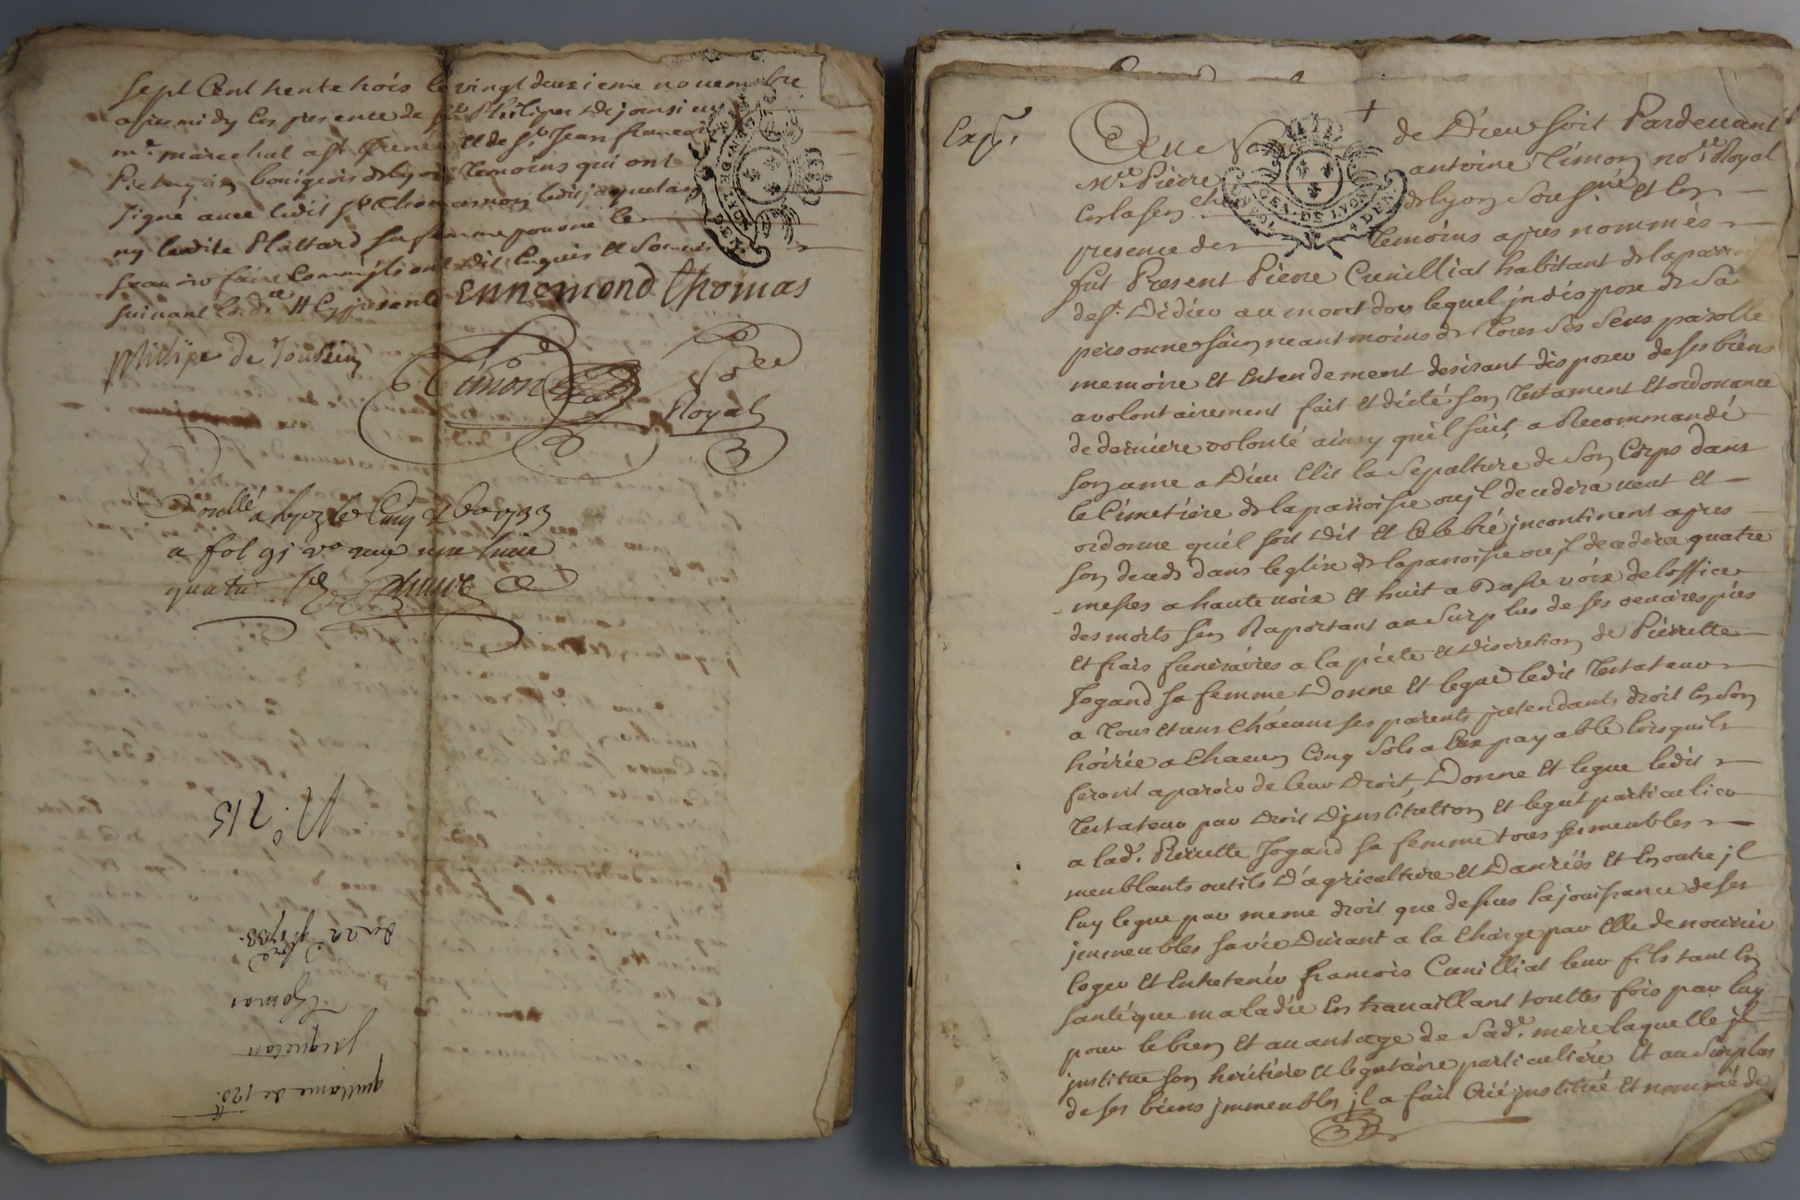 sept Cent trente trois le vingt deuxieme novembre
apres midy En presence de Sr Philipes Dejousieu
me. marechal a St Irenée et de Sr. Jean francois
bourgeois de lyon temoins qui ont
signé avec ledit Sr Thomas non ledit jaquetan
ny ladite Plattard sa femme pour ne le
scavoir faire Comme ils ont dit Enquis et Sommés
suivant lord.ce Expresente Ennemond Thomas
philipe de Jousieu
Simon
No.re
Royal
Controllé a lyon le Cinq Xbre 1733
a fol 91 vo
quatre
No. 215
du 22 9bre 1733.
Thomas
jaquetan
quittance de 120.tt
Exp.
+
Au Nom de Dieu soit Pardevant
Me. Pierre antoine Simon no.re Royal
En la Sen.chee de lyon Sousig.né et En
presence des temoins apres nommés
GEN. DE LYON
fut Present Pierre Cunilliat habitant de la parroisse
de St. Didier au mont dor lequel indisposé de Sa
personne sain neantmoins de tous Ses Sens parolle
memoire et Entendement desirant disposer de ses biens
a volontairement fait et dicté son testament et ordonance
de derniere volonté ainsy quil suit, a Recommandé
son ame a Dieu Elit la Sepulture de Son Corps dans
le Cimetiere de la parroisse ou jl decedera veut et
ordonne quel soit dit et Celebré incontinent apres
son deceds dans leglise de la parroisse ou jl decedera quatre
messes a haute voix et huit a Basse voix de loffice
des morts sen Raportant au Surplus de ses oeuvres pies
et frais funeraires a la pieté et discretion de Pierrette
Jogand sa femme Donne et legue ledit testateur
a tous et uns chacuns ses parents pretendants droit En Son
hoirie a Chacun Cinq Sols a Eux payable lorsquils
feront aparoir de leur droit, Donne et legue ledit
testateur par droit dinstitution et legat particulier
a lad. Pierrette Jogand sa femme tous ses meubles
meublants outils d'agriculture et danrées et En outre jl
luy legue par meme droit que dessus la jouissance de ses
jmmeubles sa vie durant a la Charge par Elle de nourrir
loger et Entretenir francois Cunilliat leur fils tant En
santé que maladie En travaillant touttes fois par luy
pour le bien et avantage de Sad. mere laquelle jl
justitue son heritiere et legataire particuliere et au Surplus
de ses biens jmmeubles jl a fait Créé justitué et nommé de